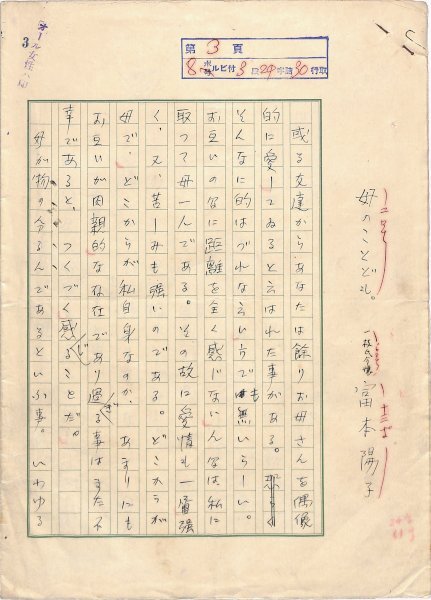 第3頁
8ポ ルビ付 3段24字詰30行取
3
母のことども。
一枝氏令嬢 富本陽子
或る友達からあなたは餘りお母さんを偶像
的に愛してゐると云はれた事がある。
そんなに的はづれな云い方でも無いらしい。
お互いの間に距離を全く感じない人間は私に
取つて母一人である。その故に愛情も一層強
く、又、苦しみも強いのである。どこからが
母で、どこからが私自身なのか、あまりにも
お互いが肉親的な存在であり過ぎる事はまた不
幸であると、つくづく感じることだ。
母が物の分る人であるといふ事。いわゆる